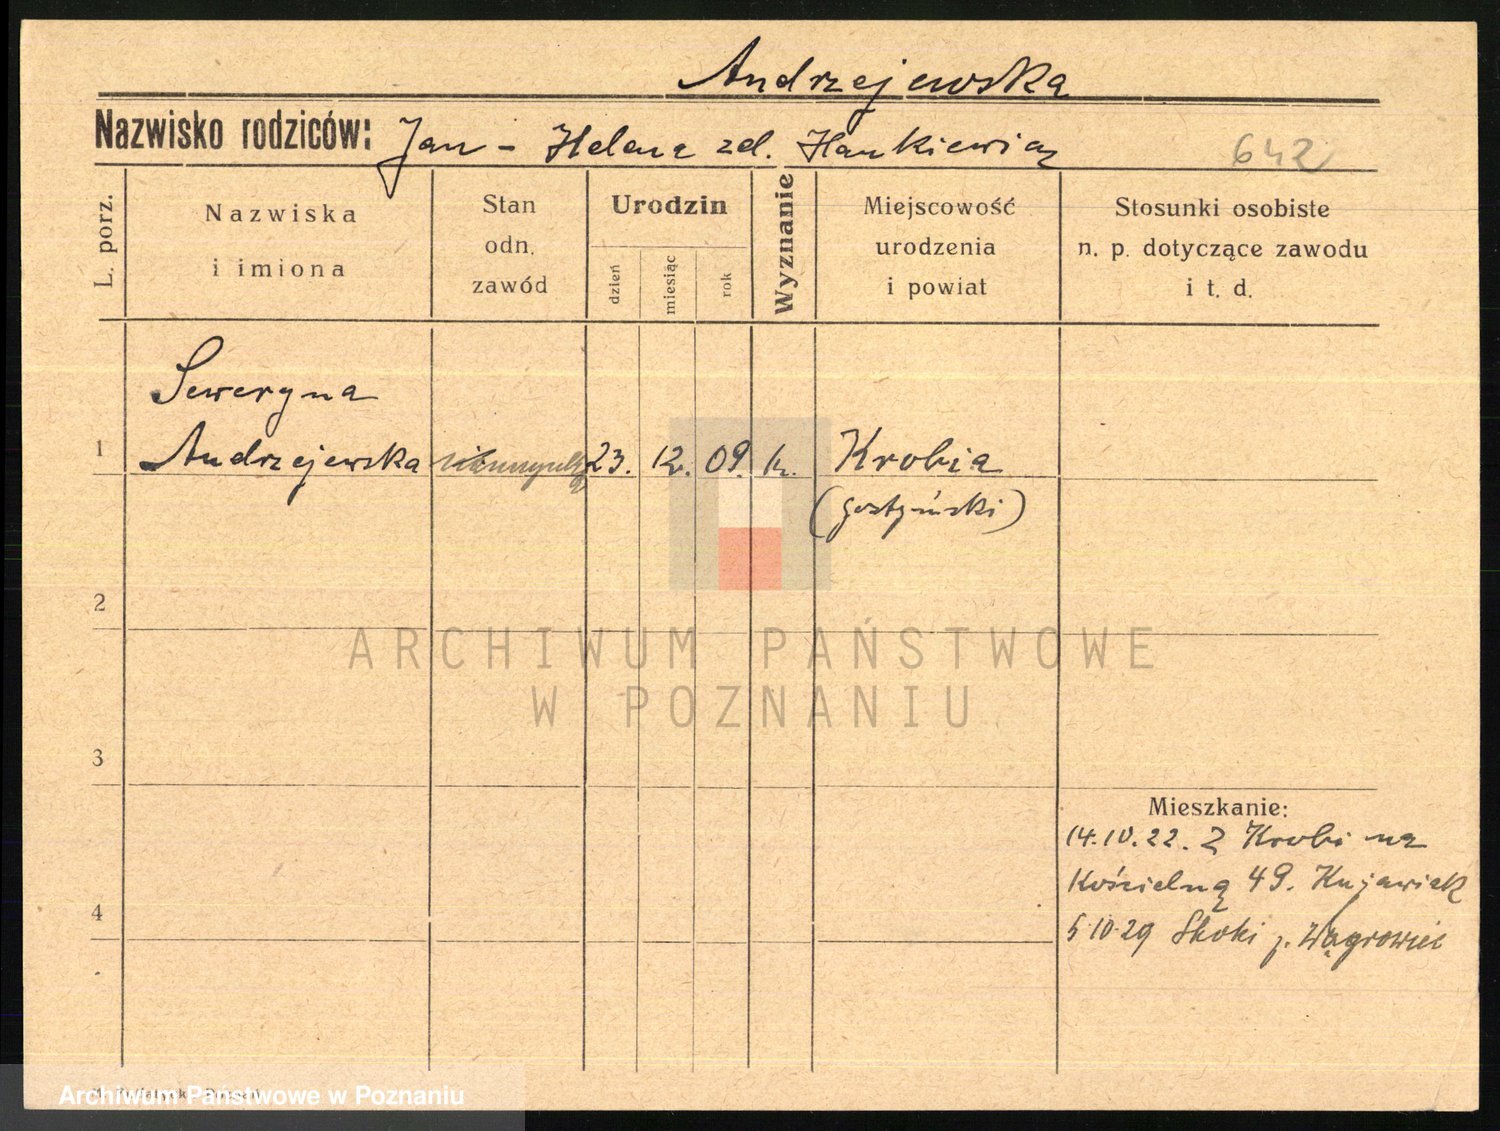 Andrzejewska
Nazwisko rodziców: Jan - Helena zd. Hankiewicz
642
L. porz.
Nazwiska
i imiona
Stan
odn.
zawód
Urodzin
dzień
miesiąc
rok
Wyznanie
Miejscowość
urodzenia
i powiat
Stosunki osobiste
n. p. dotyczące zawodu
i t. d.
Seweryna
1 Andrzejewska 23. 12. 09. k. Krobia
(gostyński)
2
ARCHIWUM PAŃSTWOWE
W POZNANIU
3
Mieszkanie:
14.10.22. Z Krobi na
Kościelną 49. Kujawiak
4
5 10 29 Skoki p. Wągrowiec
Archiwum Państwowe w Poznaniu